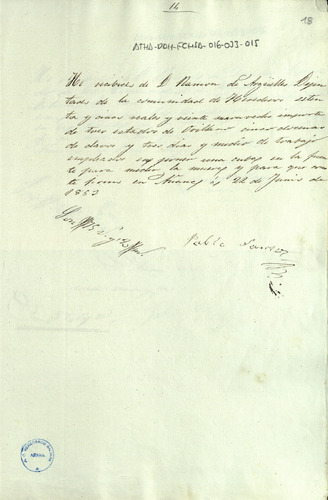 14
18
ATHA-DDH-FCHDB-016-033-015
He recibido de D. Ramon de Argüelles Dipu
tado de la comunidad de Herederos
ta y cinco reales y veinte maravedis importe
de tres estados de
de clavos y tres dias y medio de trabajo
empleados en poner una cubeg en la fuen
te para medir la muera y para que con
te firmo en Añana y 22 de Junio de
1853
Son
Pablo
ALAVA